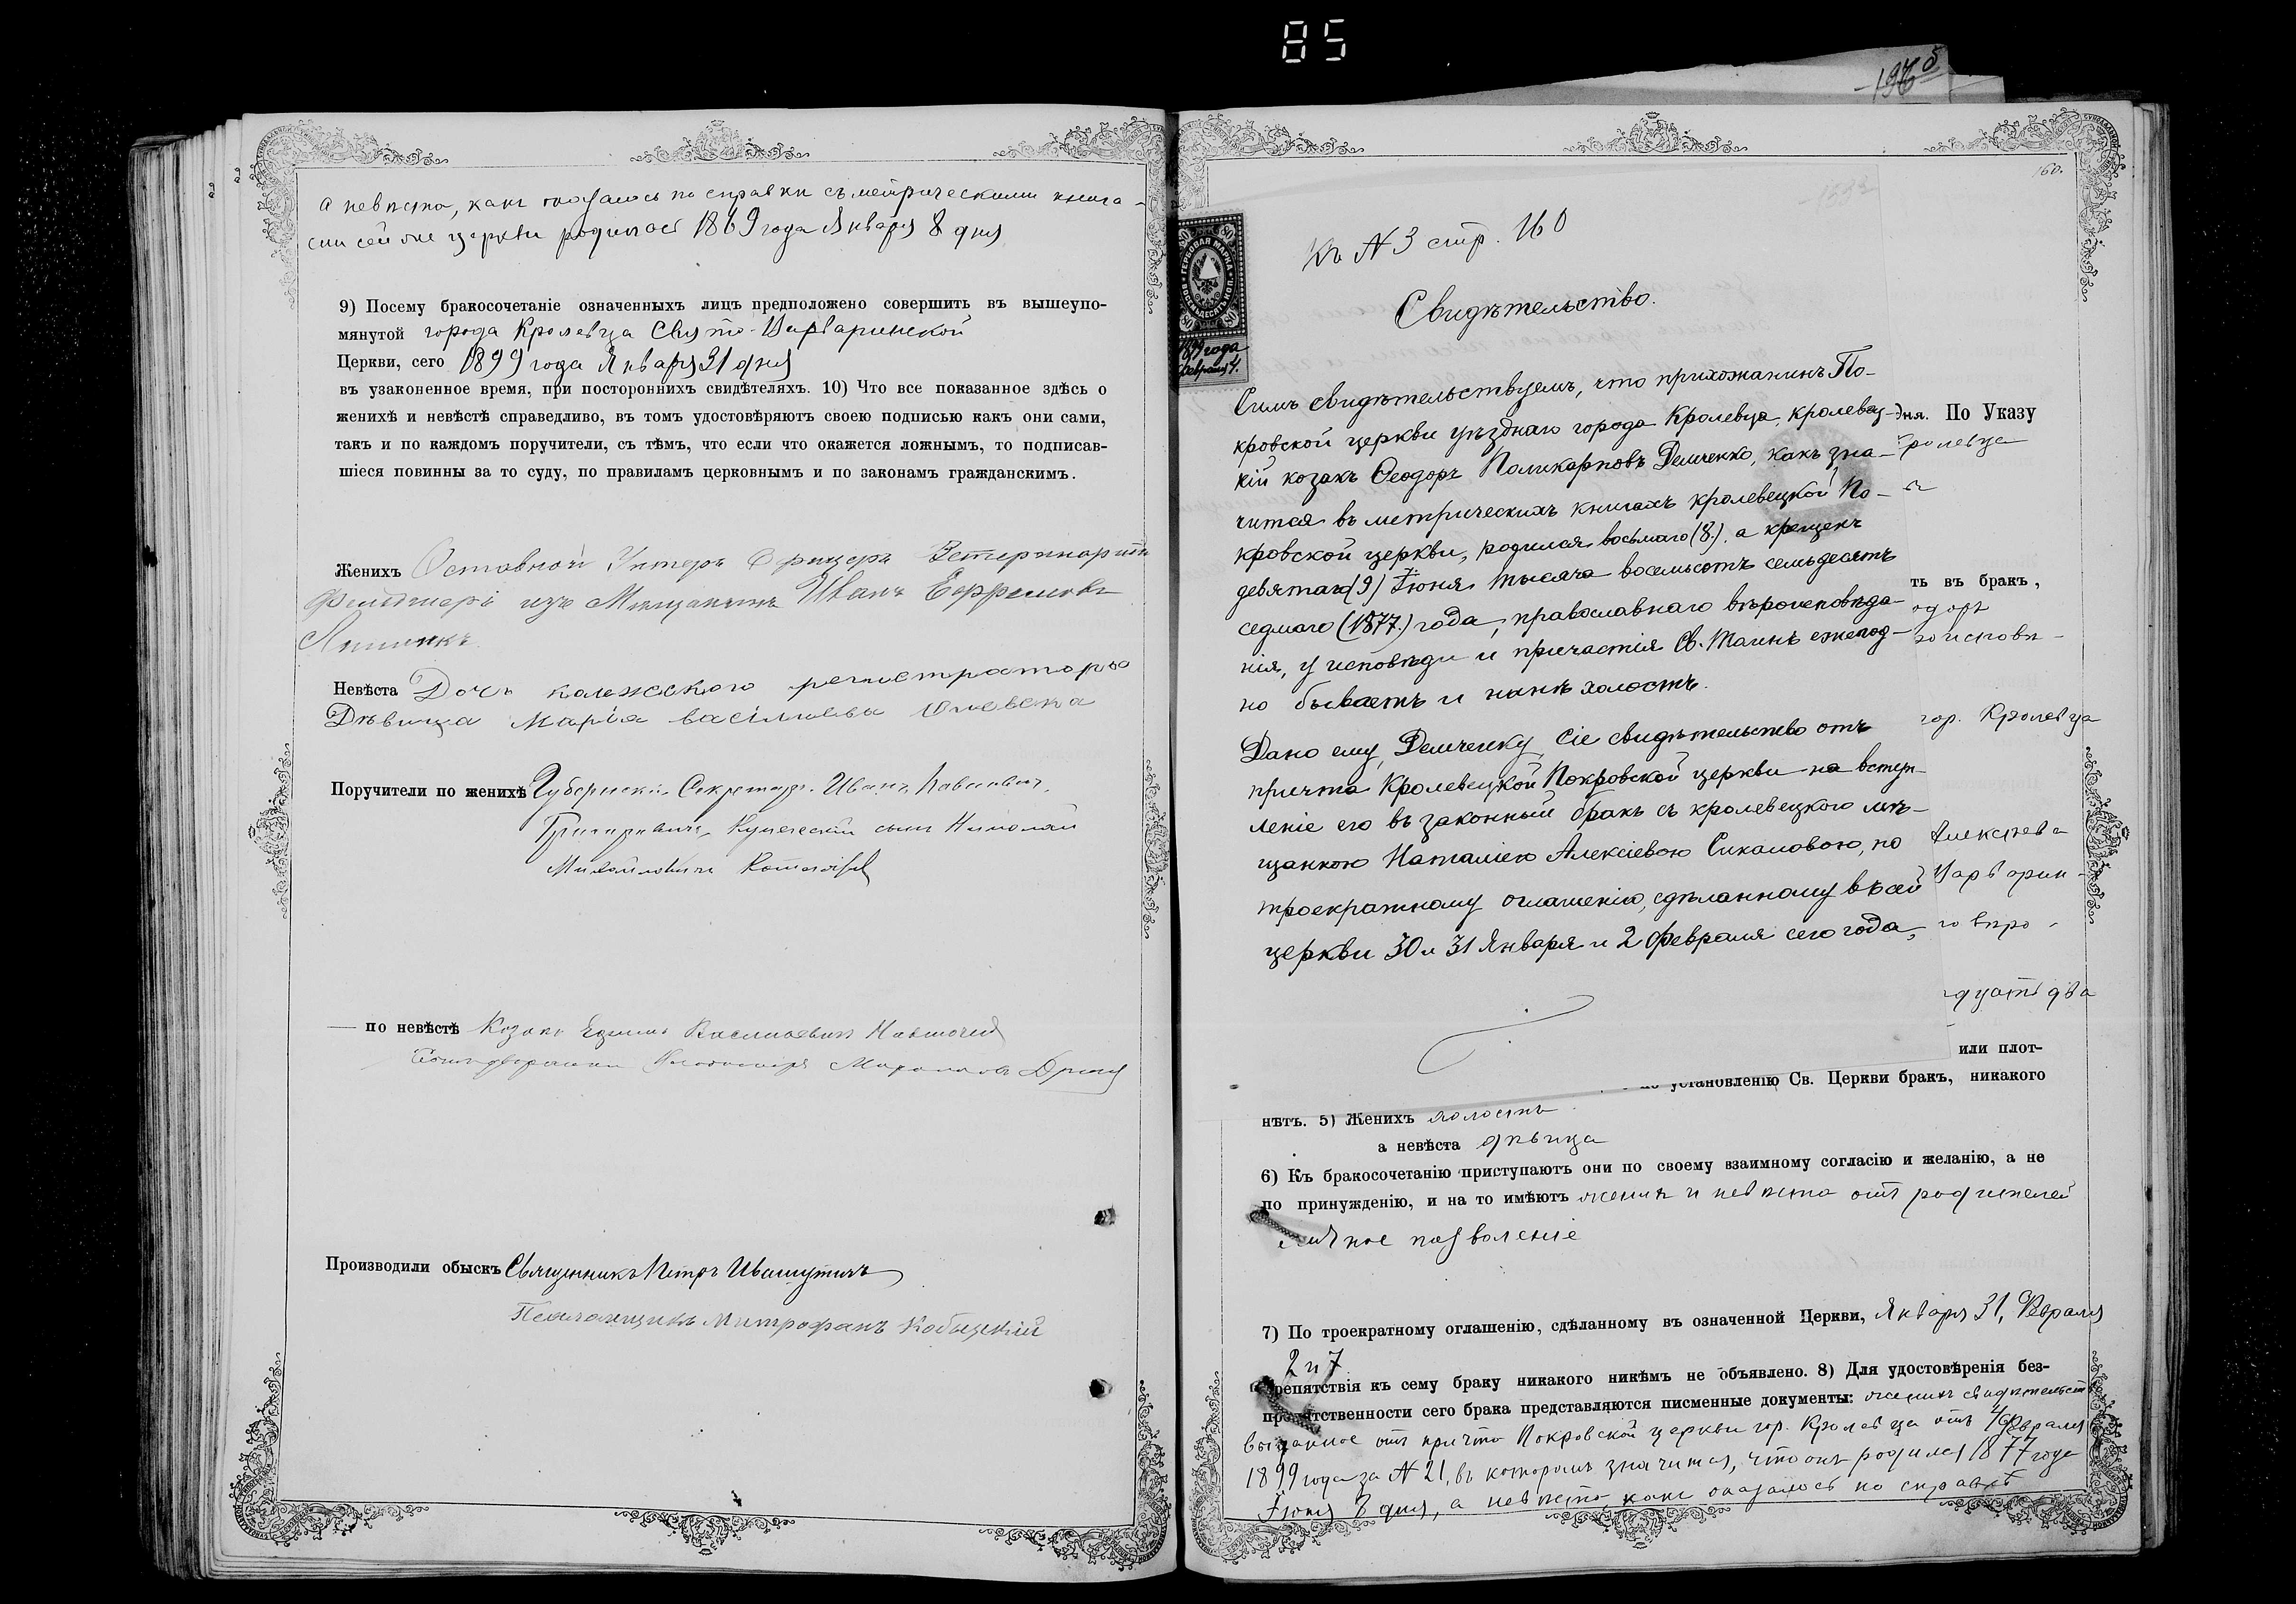 85
1965
а невѣста, какъ оказалось по справки съ метрическими книга-
ми сей же церкви родилась 1869 года Января 8 дня
9) Посему бракосочетаніе означенныхъ лицъ предположено совершить въ вышеупо-
мянутой города Кролевца Свято-Варваринской
Церкви, сего 1899 года Января 31 дня
въ узаконенное время, при постороннихъ свидѣтеляхъ. 10) Что все показанное здѣсь о
женихѣ и невѣстѣ справедливо, въ томъ удостовѣряютъ своею подписью какъ они сами,
такъ и по каждомъ поручители, съ тѣмъ, что если что окажется ложнымъ, то подписав-
шіеся повинны за то суду, по правиламъ церковнымъ и по законамъ гражданскимъ.
Женихъ Оставной Унтеръ Офицеръ
Фельдшеръ изъ Мещанинъ Иванъ Ефремовъ
Невѣста Дочь колежского регистратора
Дѣвица Марія Васіліева
Поручители по женихѣ Губернскій Секретарь Иванъ Павловичъ
Григоровичъ, Купеческій сынъ Николай
Михайловичъ
— по невѣстѣ Козакъ Ефимъ Васильевичъ
Производили обыскъ Священникъ Петръ Ивашутичъ
Псаломщикъ Митрофанъ Кобыцкій
160.
Къ № 3 стр. 160
ГЕРБОВАЯ МАРКА
ВОСЕМЬДЕСЯТЪ КОП.
80
1899 года
февраля 4.
Свидѣтельство.
Симъ свидѣтельствуемъ, что прихожанинъ По-
кровской церкви уѣзднаго города Кролевца, кролевец-
кій козакъ Ѳеодоръ Поликарповъ Демченко, какъ зна-
чится въ метрическихъ книгахъ кролевецкой По-
кровской церкви, родился восьмаго (8.), а крещенъ
девятаго (9) Іюня тысяча восемьсотъ семьдесятъ
седмаго (1877.) года, православнаго вѣроисповѣда-
нія, у исповѣди и причастія Св. Таинъ ежегод-
но бываетъ и нынѣ холостъ.
Дано ему, Демченку, сіе свидѣтельство отъ
причта Кролевецкой Покровской церкви на вступ-
леніе его въ законный бракъ съ кролевецкого мѣ-
щанкою Наталіею Алексіевою Сикаловою, по
троекратному оглашенію, сдѣланному въ сей
церкви 30 и 31 Января и 2 Февраля сего года,
дня. По Указу
ролевца
ть въ бракъ,
одоръ
оисповѣ-
гор. Кролевца
Алексѣева
Варварин-
го вѣро-
дцать два
или плот-
установленію Св. Церкви бракъ, никакого
нѣтъ. 5) Женихъ холостъ
а невѣста дѣвица
6) Къ бракосочетанію приступаютъ они по своему взаимному согласію и желанію, а не
по принужденію, и на то имѣютъ женихъ и невѣста отъ родителей
личное позволеніе
7) По троекратному оглашенію, сдѣланному въ означенной Церкви, Января 31, Февраля
2 и 7
препятствія къ сему браку никакого никѣмъ не объявлено. 8) Для удостовѣренія без-
препятственности сего брака представляются писменные документы: женихъ свидѣтельство
выданное отъ причта Покровской церкви гор. Кролевца отъ 4 Февраля
1899 года за № 21, въ которомъ значится, что онъ родился 1877 года
Іюня 8 дня, а невѣста, какъ оказалось по справкѣ